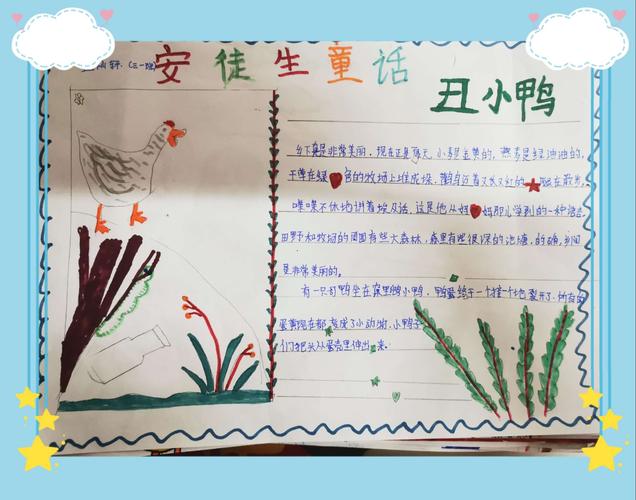 雨轩.(三一班)
安徒生童话
丑小鸭
乡下真是非常美丽.现在正是夏天.小麦是金黄的,燕麦是绿油油的,
干草在绿色的牧场上堆成垛,鹳鸟迈着又长又红的腿在散步,
喋喋不休地讲着埃及话,这是他从妈妈那儿学到的一种语言.
田野和牧场的周围有些大森林,森里有些很深的池塘,的确,乡间
是非常美丽的。
有一只母鸭坐在窠里
蛋黄现在都变成了小动物.小鸭子
们把头从蛋壳里伸出来.